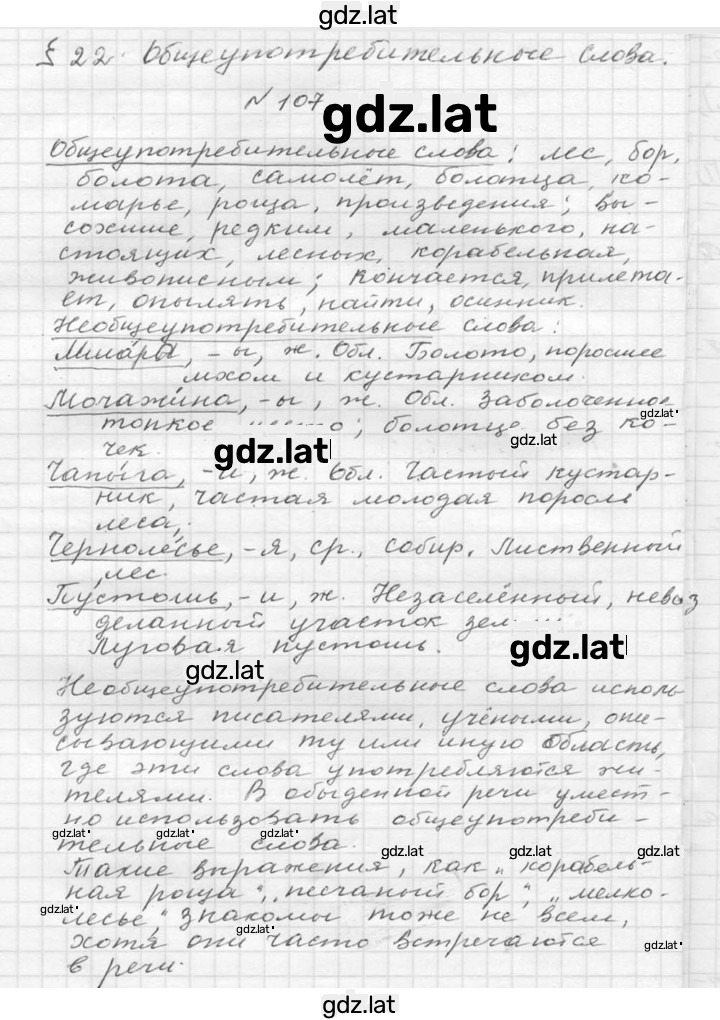 gdz.lat
§ 22. Общеупотребительные слова.
N 107
gdz.lat
Общеупотребительные слова: лес, бор,
болота, самолёт, болотца, ко-
марье, роща, произведения; вы-
сохшие, редким, маленького, на-
стоящих, лесных, корабельная,
живописным; кончается, прилета-
ет, опылять, найти, осинник.
Необщеупотребительные слова:
Мшáры, -ы, ж. Обл. Болото, поросшее
мхом и кустарником.
Мочажина, -ы, ж. Обл. Заболоченное
gdz.lat
топкое; болотце без ко-
gdz.lat
gdz.lat
чек.
Чапы́га, -и, ж. Обл. Частый кустар-
ник, частая молодая поросль
леса,.
Черноле́сье, -я, ср., собир. Лиственный
лес.
Пу́стошь, -и, ж. Незаселённый, невоз
деланный участок зем
Луговая пустошь.
gdz.lat
gdz.lat
Необщеупотребительные слова исполь
зуются писателями, учёными, опи-
сывающими ту или иную область,
где эти слова употребляются жи-
телями. В обыденной речи умест-
но использовать общеупотреби-
gdz.lat gdz.lat gdz.lat
тельные слова.
gdz.lat gdz.lat gdz.lat
Такие выражения, как „корабель-
ная роща", „песчаный бор", „мелко-
gdz.lat
лесье," знакомы тоже не всем,
gdz.lat
хотя они часто встречаются
gdz.lat
в речи.
gdz.lat